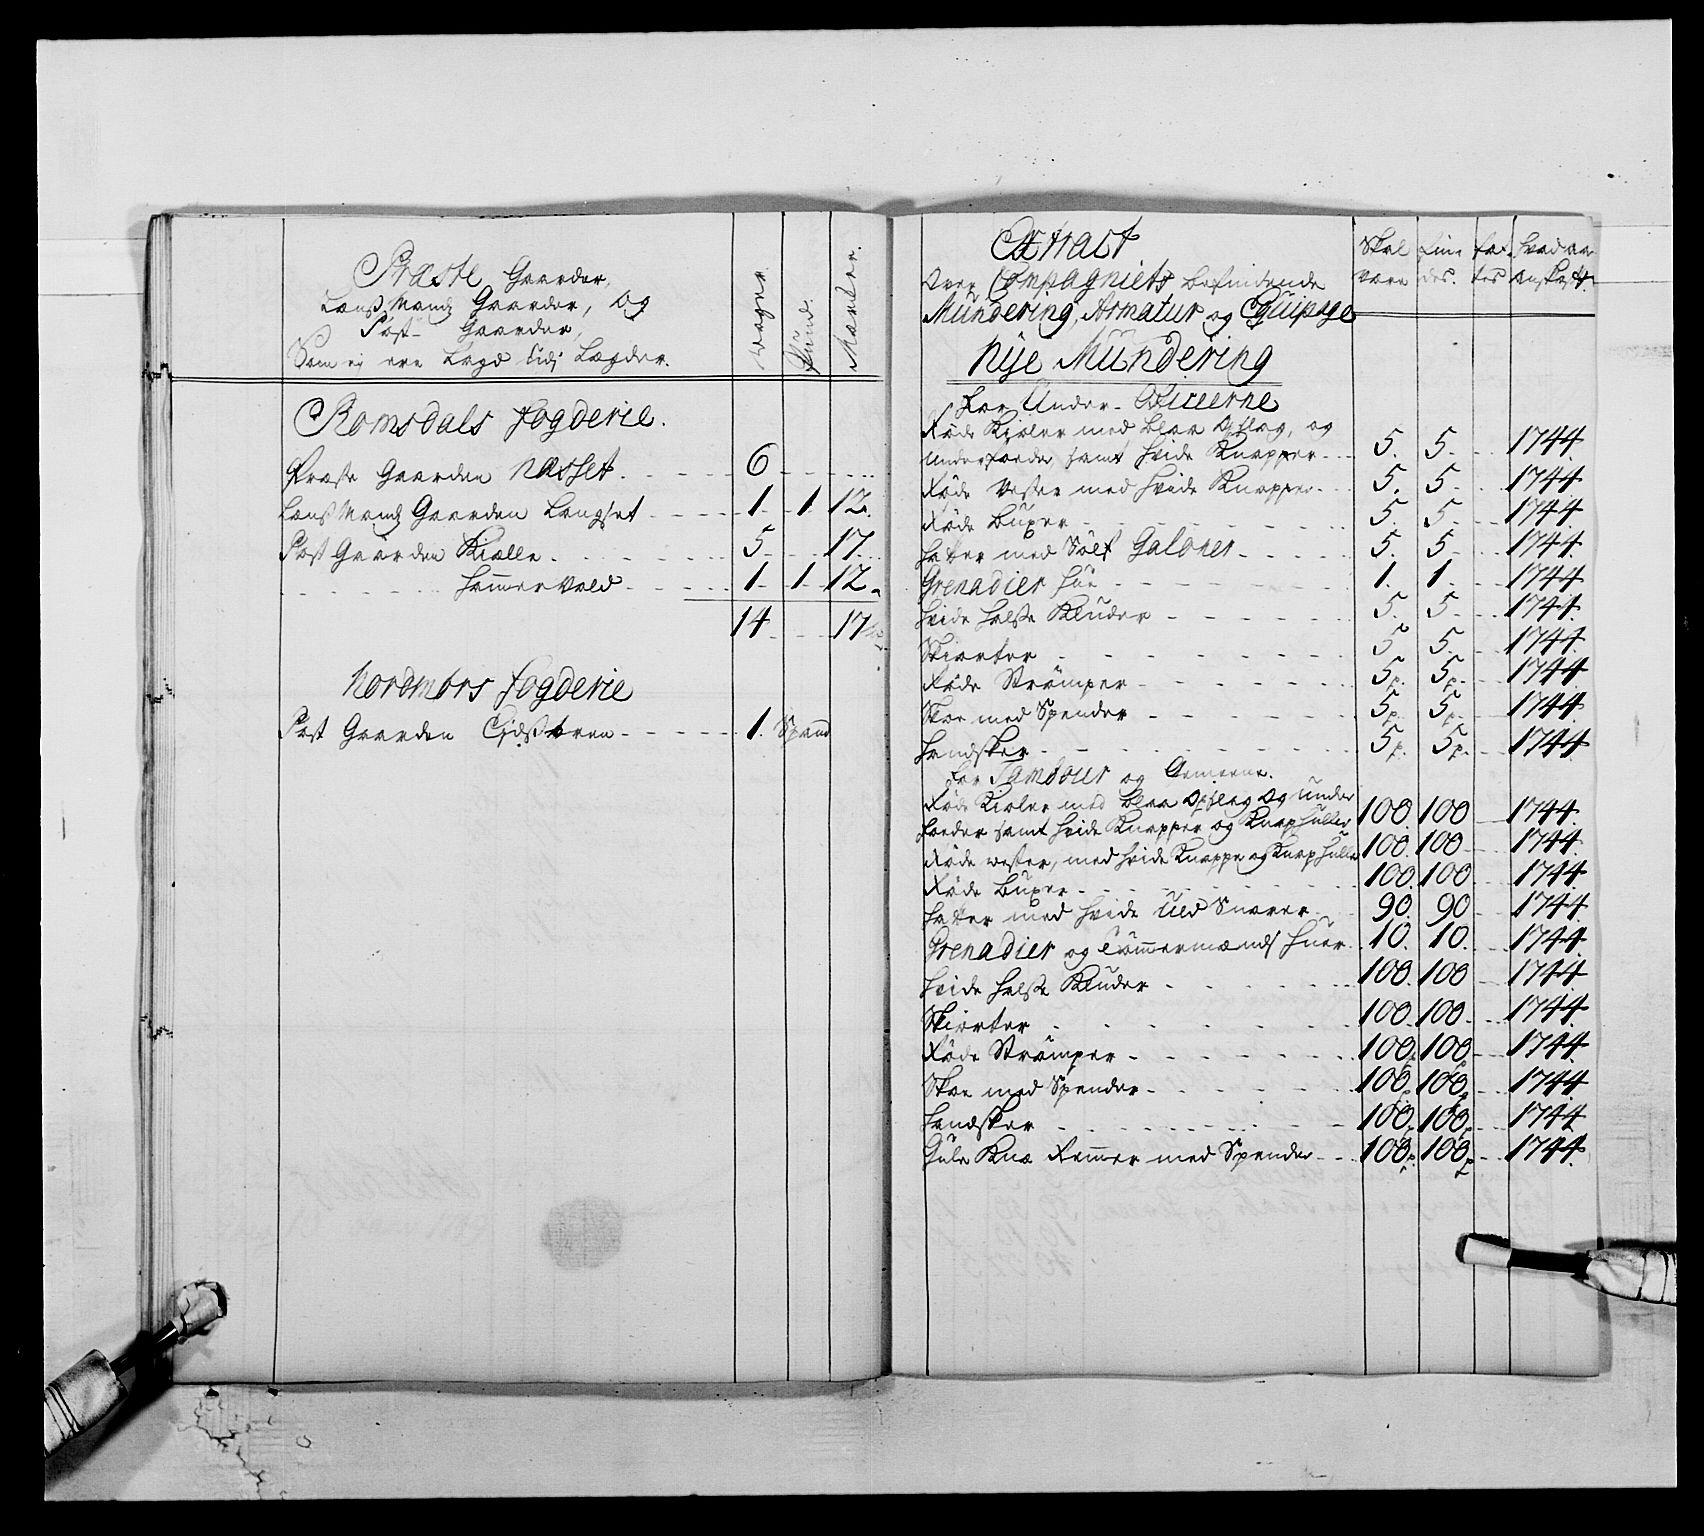 Præste Gaarder,
Lensmands Gaarder, og
Post- Gaarder,
Som ej ere lagd udj Lægder.
Woger
Pund.
Marker.
Romsdals Fogderie.
Præste Gaarden Nasset. 6
Lensmands Gaarden Langset 1 1 12.
Post Gaarden Kialle 5 17.
Hammervold 1 1 12.
14 17
Nordmørs Fogderie
Post Gaarden 1. Spand
Extract
Over Compagniets befindende
Mundering, Armatur og Equipage
Skal være
Findes.
Fattes
Hvad aar anskaft.
Nye Mundering
For Under- Officierne
Røde Kioler med blaa Opslag, og
underfoeder, samt hvide Knapper 5. 5. 1744.
Røde Vester med hvide Knapper 5. 5. 1744
Røde Buxer 5. 5. 1744
Hatter med Sølf Galoner 5. 5. 1744.
Grenadier Hue 1. 1. 1744
Hvide Halsse Kluder 5. 5. 1744.
Skiorter 5 5. 1744.
Røde Strømper 5p. 5p. 1744
Skoe med Spender 5p. 5p. 1744
Handsker 5p. 5p. 1744
For Tambour og Gemeene.
Røde Kioler med blaa Opslag og under
foeder samt hvide Knapper og Knaphuller 100. 100 1744.
Røde vester, med hvide Knappe og Knaphulle 100. 100 1744.
Røde Buxer 100. 100 1744
Hatter med hvide Uld Snorer 90. 90 1744
Grenadier og Tømmermænds Huer 10. 10. 1744
Hvide Halsse Kluder 100. 100 1744
Skiorter 100. 100. 1744
Røde Strømper 100p. 100p 1744
Skoe med Spender 100p. 100p 1744
Handsker 100p. 100p. 1744
Gule Knæ Remmer med Spender 100p. 100p 1744.